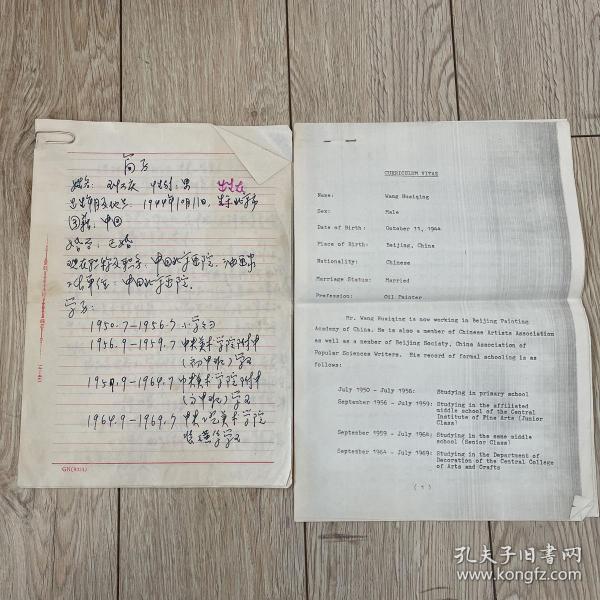 简历
姓名: 王怀庆 性别: 男
出生年月及地点: 1944年10月11日, 生于北京市
出生在
国籍: 中国
婚否: 已婚
现在职称及职务: 中国北京画院, 油画家
工作单位: 中国北京画院.
学历:
1950.7-1956.7 小学学习
1956.9-1959.7 中央美术学院附中
(初中班) 学习
1959.9-1964.7 中央美术学院附中
(高中班) 学习
1964.9-1969.7 中央工艺美术学院
装潢系学习
CURRICULUM VITAE
Name: Wang Huaiqing
Sex: Male
Date of Birth: October 11, 1944
Place of Birth: Beijing, China
Nationality: Chinese
Marriage Status: Married
Profession: Oil Painter
Mr. Wang Huaiqing is now working in Beijing Painting
Academy of China. He is also a member of Chinese Artists Association
as well as a member of Beijing Society, China Association of
Popular Sciences Writers. His record of formal schooling is as
follows:
July 1950 - July 1956: Studying in primary school
September 1956 - July 1959: Studying in the affiliated
middle school of the Central
Institute of Fine Arts (Junior
Class)
September 1959 - July 1964: Studying in the same middle
school (Senior Class)
September 1964 - July 1969: Studying in the Department of
Decoration of the Central College
of Arts and Crafts
(1)
孔夫子旧书网
www.kongfz.com